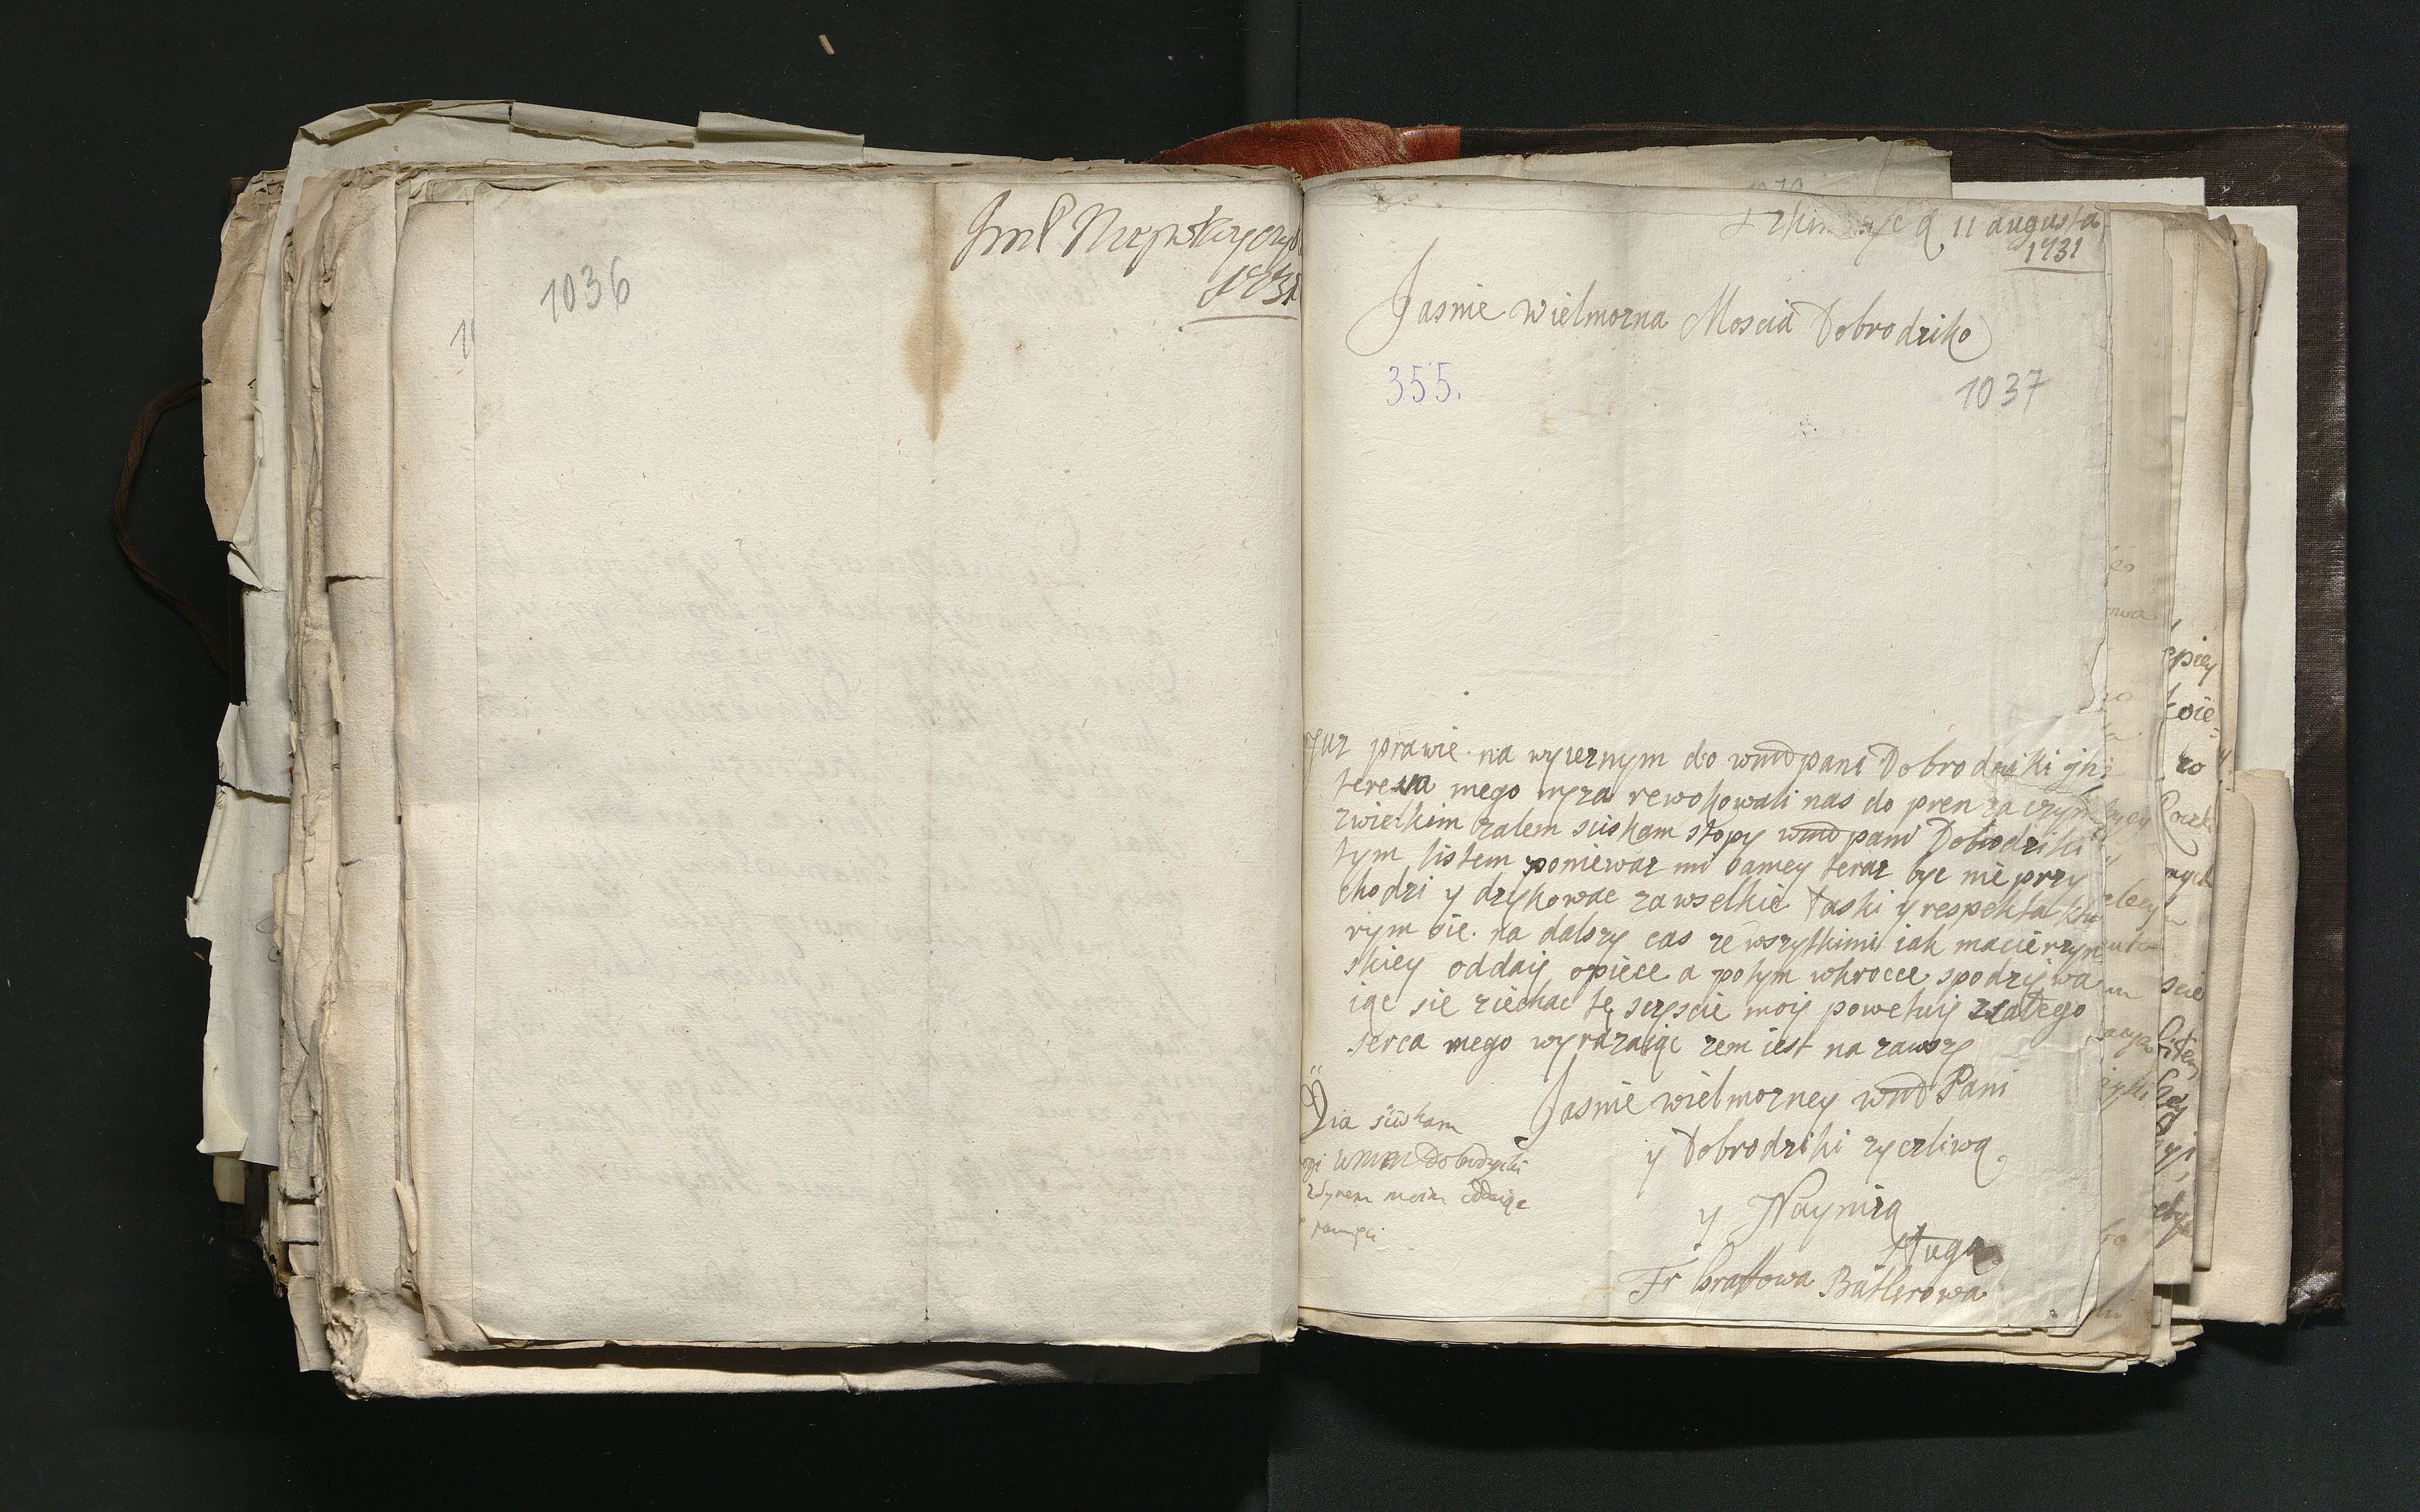 1036
1731
d 11 augusta
1731
Jasnie wielmozna Moscia Dobrodziko
355.
1037
Juz prawie na wyieznym do wmd pani Dobrodziki jn
teresa mego męza rewokowali nas do pren za czym
zwielkim zalem sciskam stopy wmd pani Dobrodziki
tym listem poniewaz mi samey teraz byc nie przy
chodzi y dzękowac zawselkie łaski y respekta kto
rym sie na dalszy cas ze wszytkimi iak macierzyn
skiey oddaię opiece a potym wkrotce spodziewa
iąc sie ziechac tę sczęscie moię powetuię zcałego
serca mego wyrazaiąc zem iest na zawszę
Jasnie wielmozney wmd Pani
y Dobrodziki zyczliwą
y Nayniza
sługa
Fr Grattowa Butlerowa
sciskam
wmm Dobrodziki
z Synem moim oddaiąc